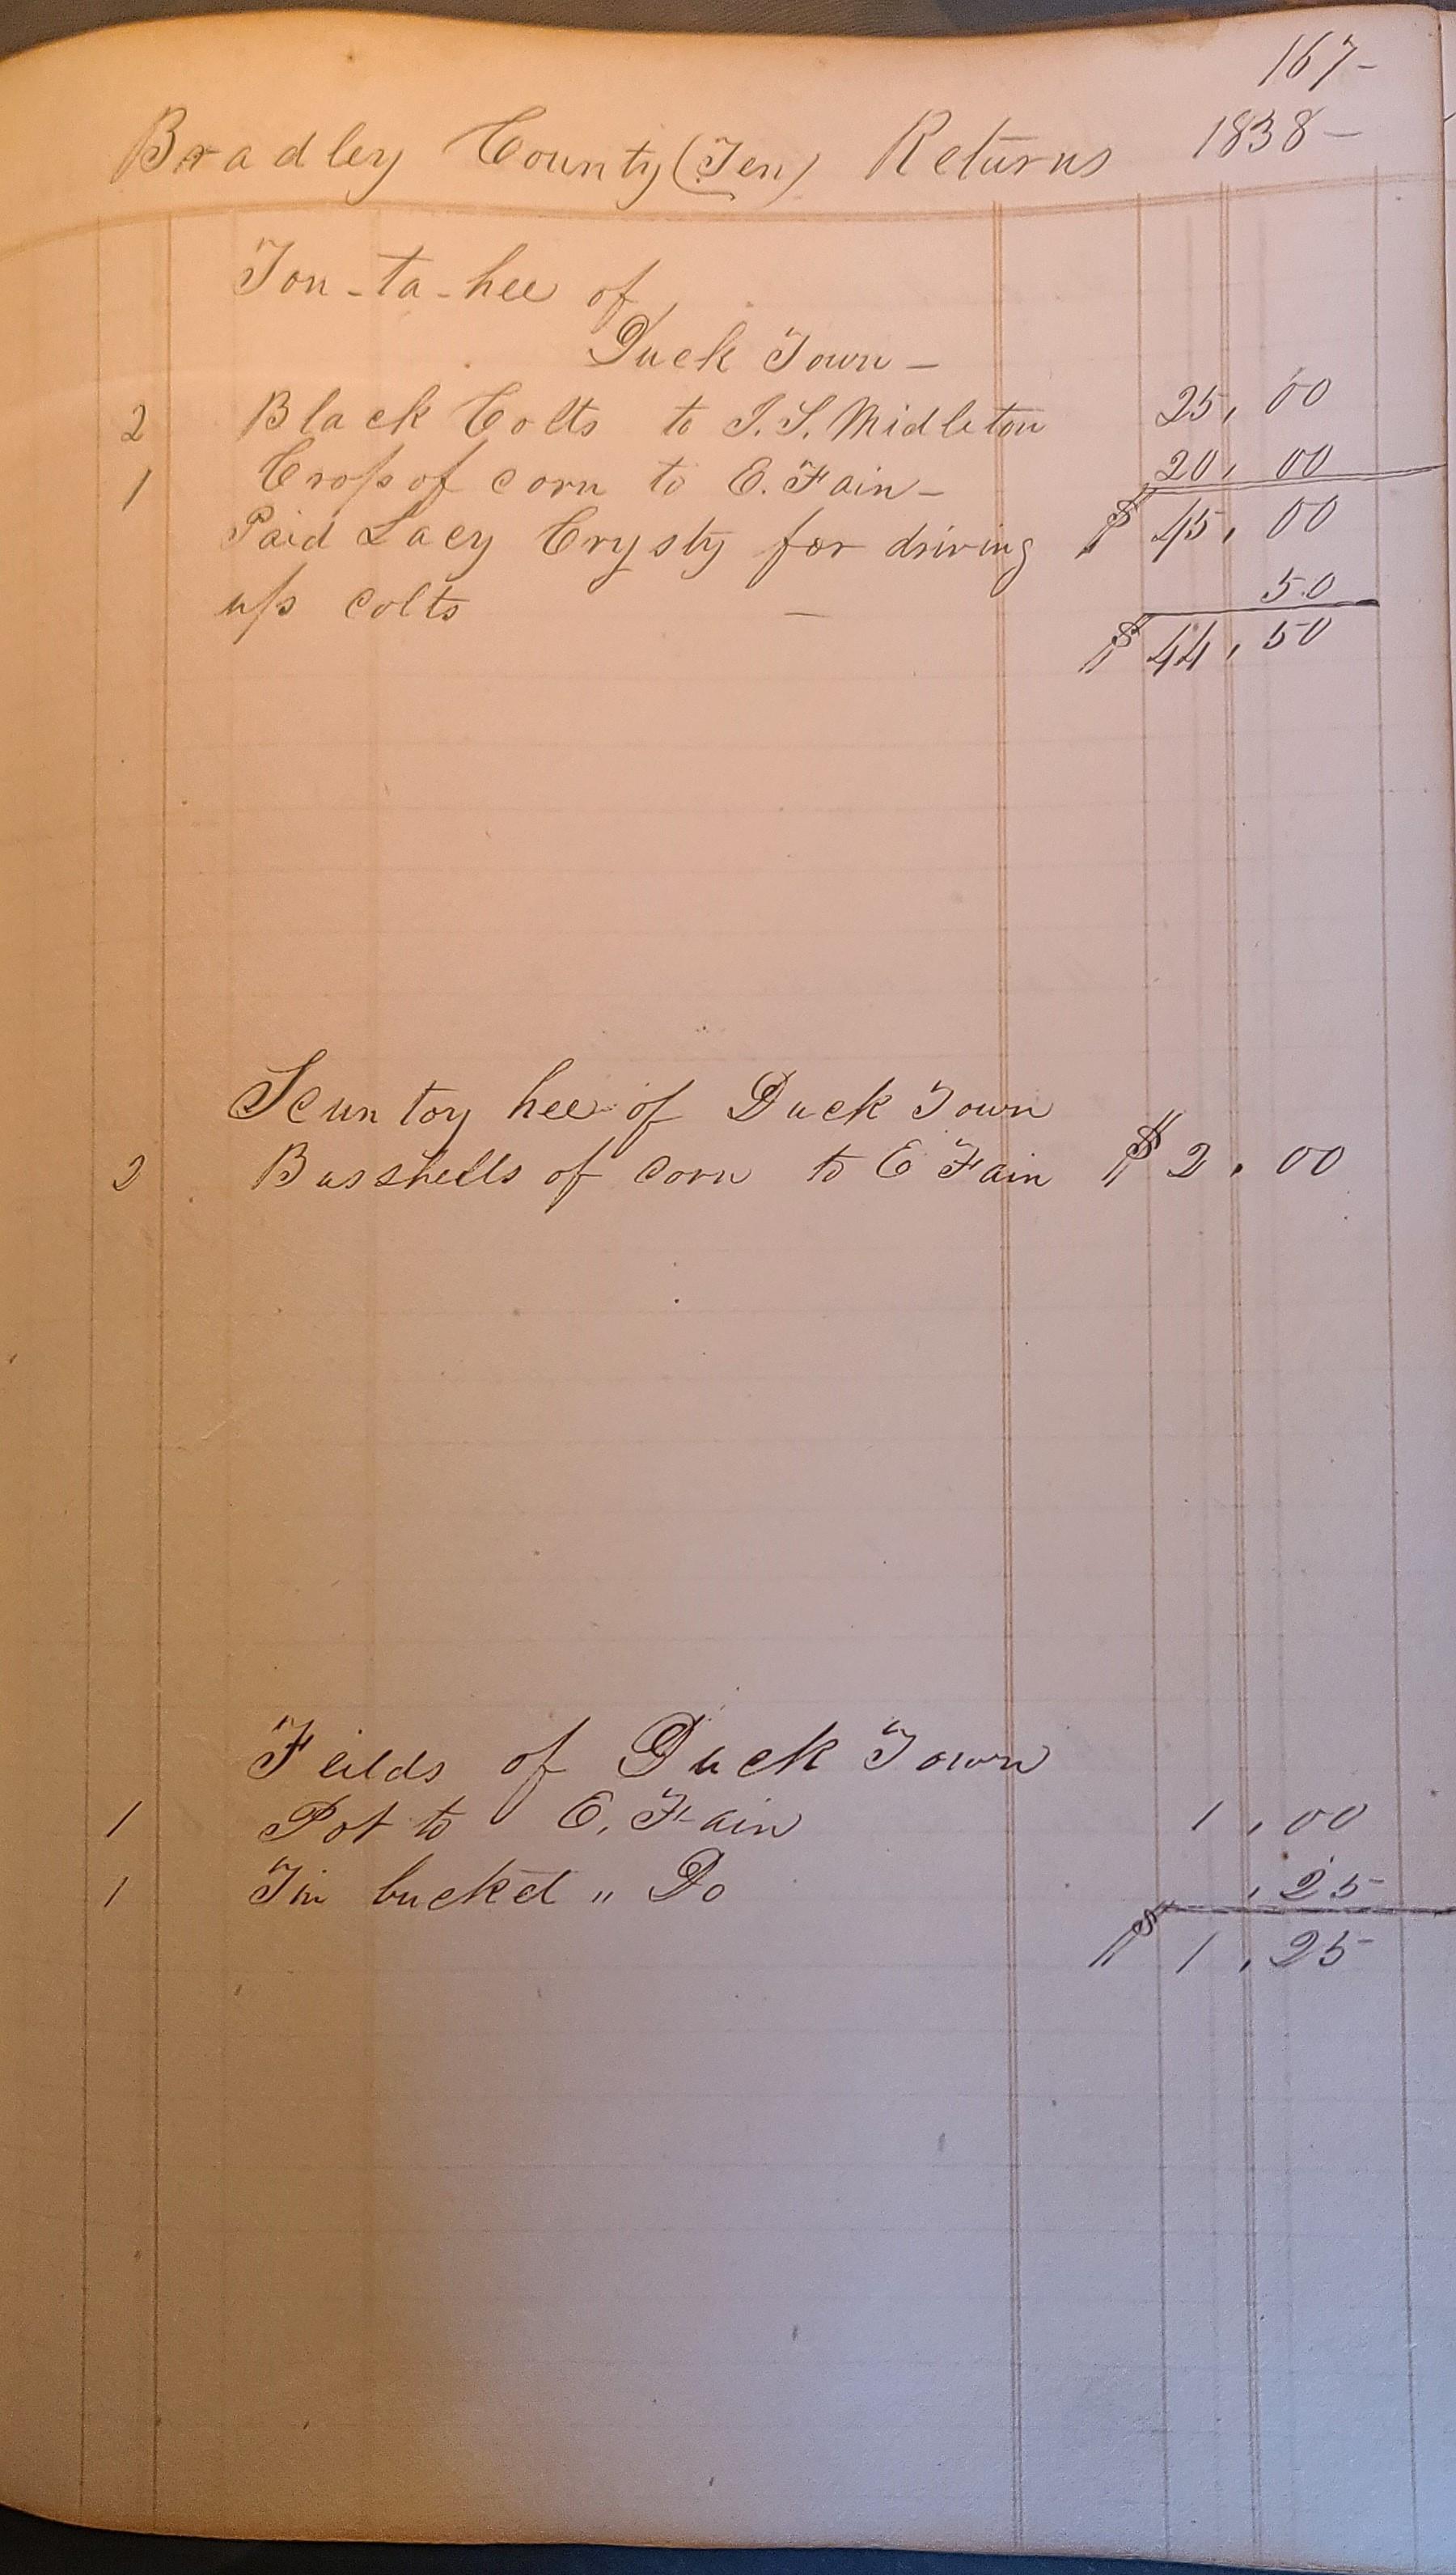 167-
Bradley County (Ten) Returns 1838-
Ton-ta-hee of
Duck Town-
2 Black Colts to J. S. Midleton 25,00
1 Crop of corn to E. Fain- 20,00
Paid Lacy Crysty for driving $45,00
up colts - 50
$44,50
Scun toy hee of Duck Town
2 Busshells of corn to E Fain $2.00
Feilds of Duck Town
1 Pot to E. Fain 1,00
1 Tin bucket " Do ,25
$1,25